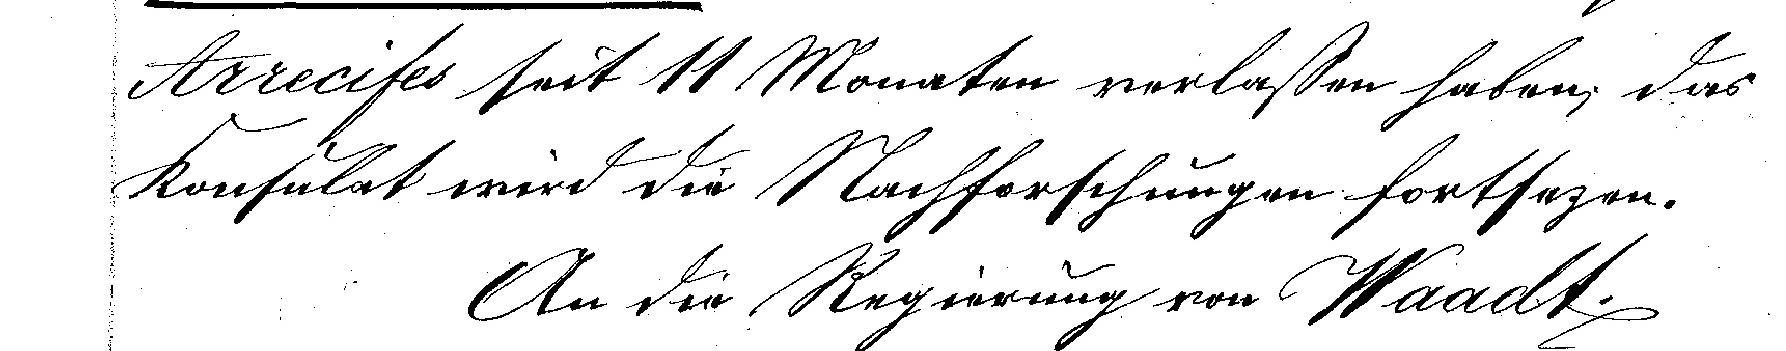 Arrecifes seit 11 Monaten verlaßen haben; das
Konsulat wird die Nachforschungen fortsezen.
An die Regierung von Waadt.